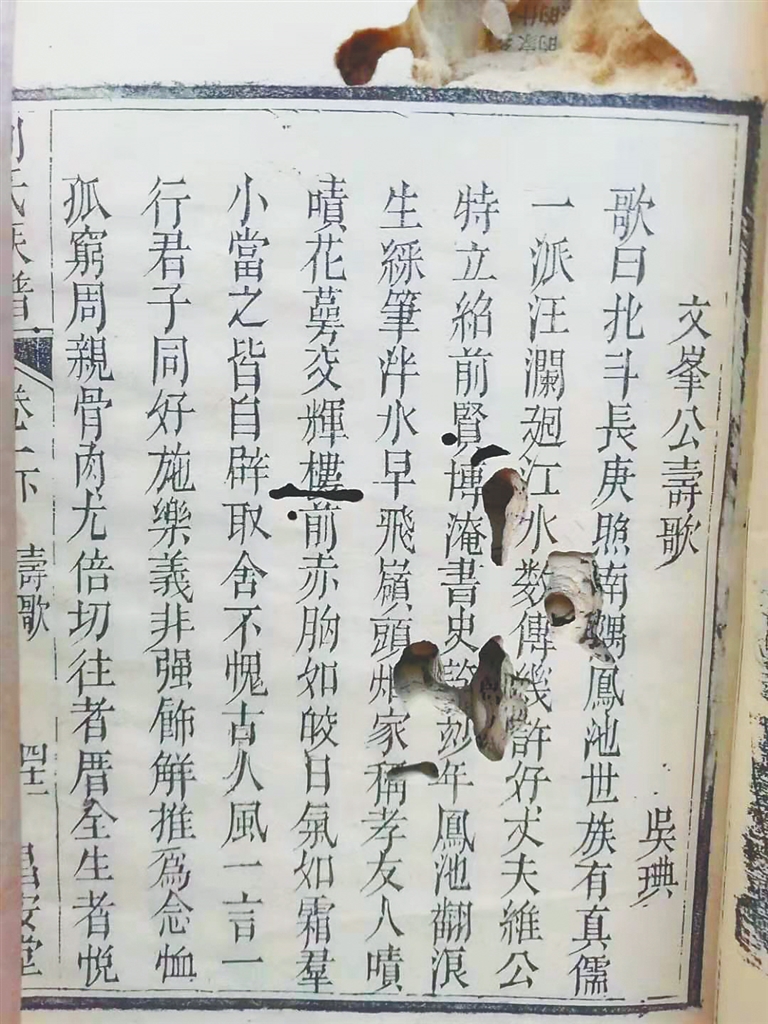 文峯公壽歌 吳琠
歌曰北斗長庚照南隅鳳池世族有真儒
一派汪瀾廻江水数傳幾許好丈夫維公
特立紹前賢博淹書史妙年鳳池翻浪
生綵筆泮水早飛嶺頭家稱孝友人嘖
嘖花萼交輝樓前赤胸如皎日氣如霜羣
小當之皆自辟取舍不愧古人風一言一
行君子同好施樂義非强飾解推爲念恤
孤窮周親骨肉尤倍切往者厝全生者悅
氏族譜 卷一下 壽歌 四十二 堂